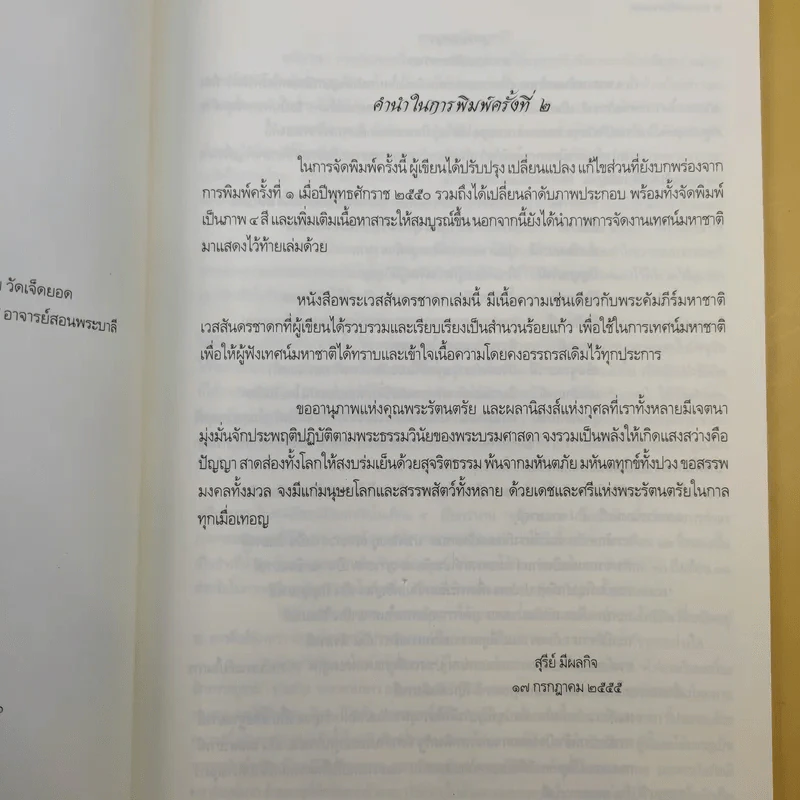 วัดเจ็ดยอด
อาจารย์สอนพระบาลี
คำนำในการพิมพ์ครั้งที่ ๒
ในการจัดพิมพ์ครั้งนี้ ผู้เขียนได้ปรับปรุง เปลี่ยนแปลง แก้ไขส่วนที่ยังบกพร่องจาก
การพิมพ์ครั้งที่ ๑ เมื่อปีพุทธศักราช ๒๕๕๐ รวมถึงได้เปลี่ยนลำดับภาพประกอบ พร้อมทั้งจัดพิมพ์
เป็นภาพ ๔ สี และเพิ่มเติมเนื้อหาสาระให้สมบูรณ์ขึ้น นอกจากนี้ยังได้นำภาพการจัดงานเทศน์มหาชาติ
มาแสดงไว้ท้ายเล่มด้วย
หนังสือพระเวสสันดรชาดกเล่มนี้ มีเนื้อความเช่นเดียวกับพระคัมภีร์มหาชาติ
เวสสันดรชาดกที่ผู้เขียนได้รวบรวมและเรียบเรียงเป็นสำนวนร้อยแก้ว เพื่อใช้ในการเทศน์มหาชาติ
เพื่อให้ผู้ฟังเทศน์มหาชาติได้ทราบและเข้าใจเนื้อความโดยคงอรรถรสเดิมไว้ทุกประการ
ขออานุภาพแห่งคุณพระรัตนตรัย และผลานิสงส์แห่งกุศลที่เราทั้งหลายมีเจตนา
มุ่งมั่นจักประพฤติปฏิบัติตามพระธรรมวินัยของพระบรมศาสดา จงรวมเป็นพลังให้เกิดแสงสว่างคือ
ปัญญา สาดส่องทั้งโลกให้สงบร่มเย็นด้วยสุจริตธรรม พ้นจากมหันตภัย มหันตทุกข์ทั้งปวง ขอสรรพ
มงคลทั้งมวล จงมีแก่มนุษยโลกและสรรพสัตว์ทั้งหลาย ด้วยเดชและศรีแห่งพระรัตนตรัยในกาล
ทุกเมื่อเทอญ
สุรีย์ มีผลกิจ
๑๗ กรกฎาคม ๒๕๕๕